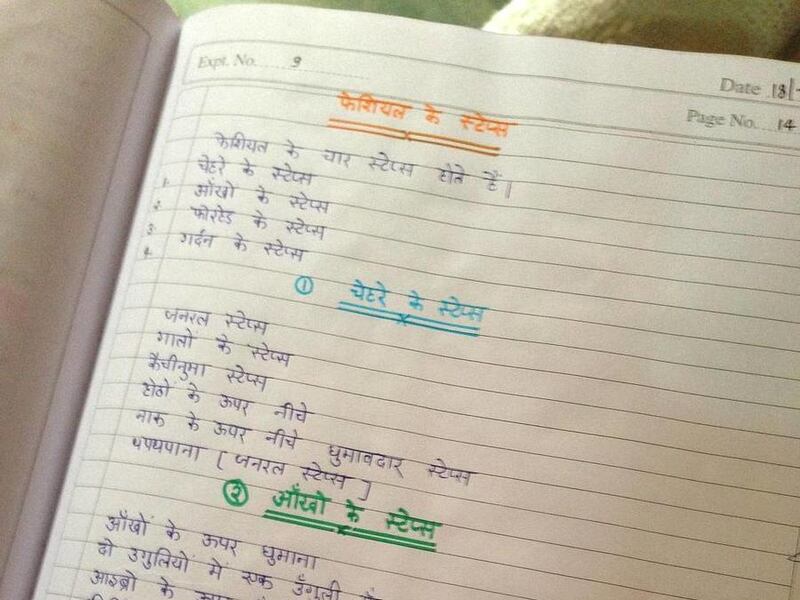 Expt. No. 9
Date 13/
Page No. 14
फेशियल के स्टेप्स
फेशियल के चार स्टेप्स होते हैं।
1. चेहरे के स्टेप्स
2. आँखो के स्टेप्स
3. फोरहेड के स्टेप्स
4. गर्दन के स्टेप्स
① चेहरे के स्टेप्स
जनरल स्टेप्स
गालों के स्टेप्स
कैचीनुमा स्टेप्स
होठों के ऊपर नीचे
नाक के ऊपर नीचे घुमावदार स्टेप्स
थपथपाना [ जनरल स्टेप्स ]
② आँखो के स्टेप्स
आँखों के ऊपर घुमाना
दो उगुलियों में एक उँगुली
आइब्रो के